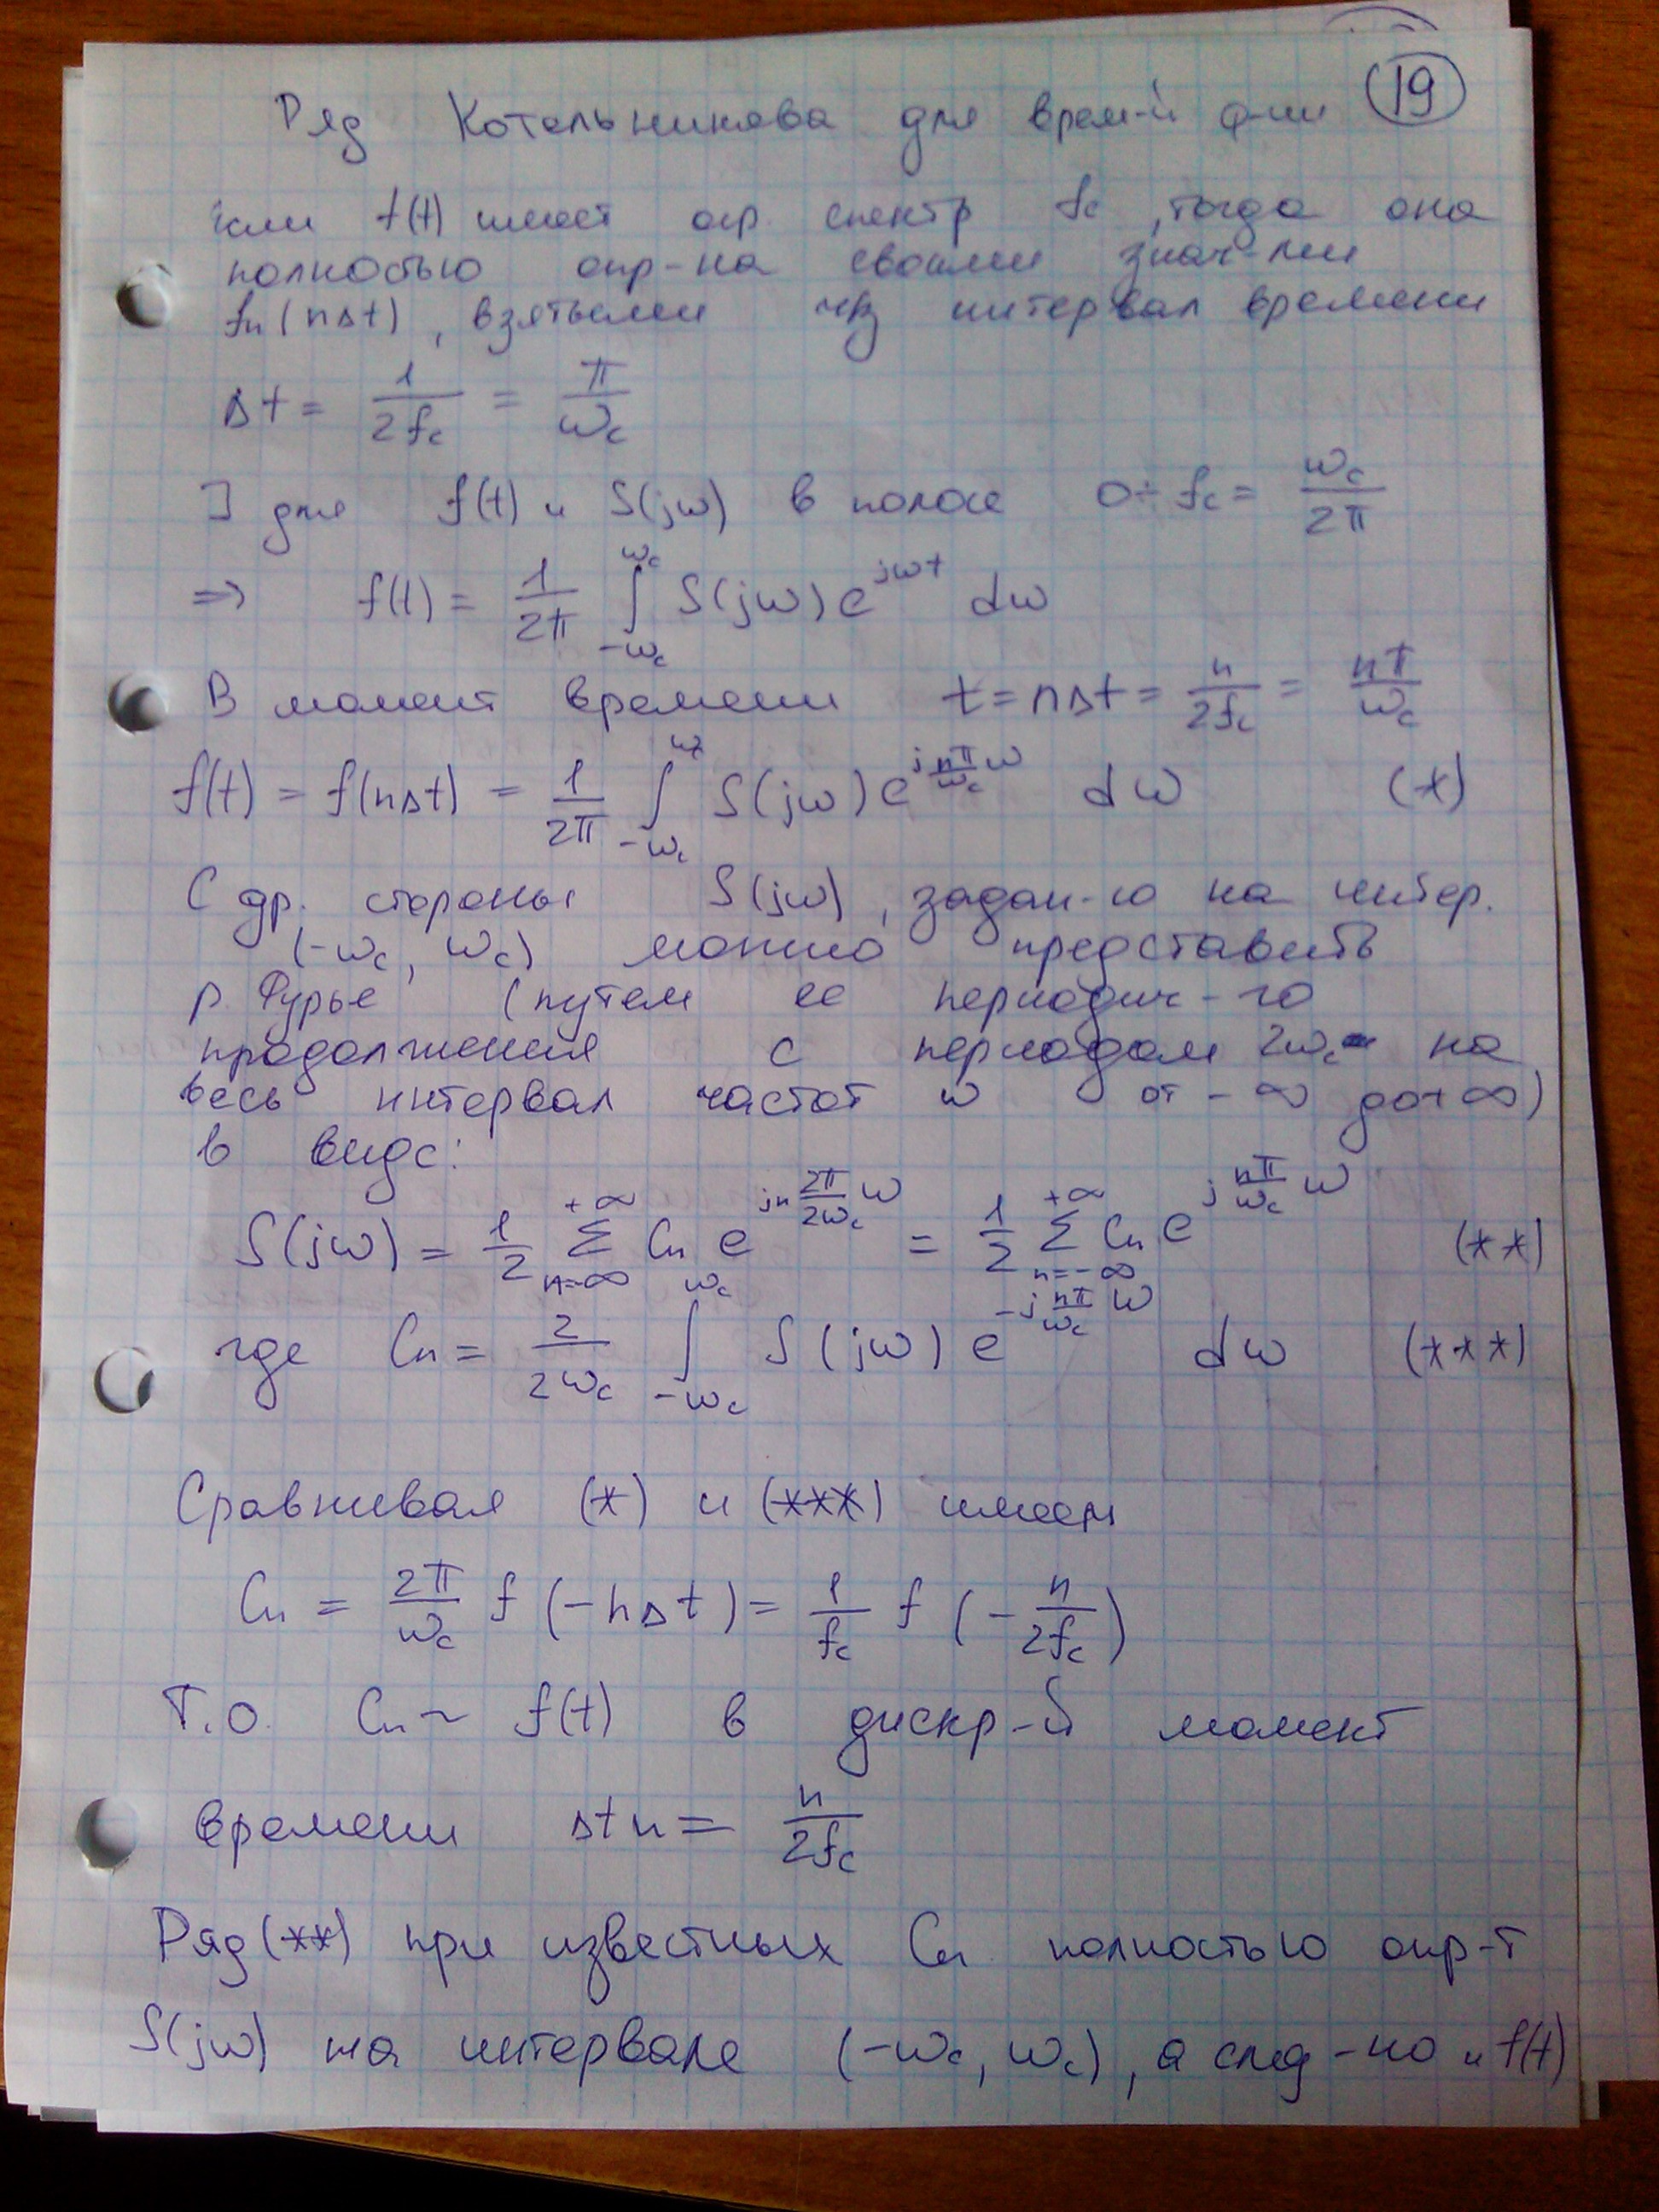 Ряд Котельникова для врем-й ф-ии 19
если f(t) имеет огр. спектр fc, тогда она
полностью опр-на своими знач-ями
fn(nΔt), взятыми чрз интервал времени
Δt = 1/(2fc) = π/ωc
] для f(t) и S(jω) в полосе 0÷fc = ωc/(2π)
⇒ f(t) = 1/(2π) ∫_{-ωc}^{ωc} S(jω) e^{jωt} dω
В момент времени t = nΔt = n/(2fc) = nπ/ωc
f(t) = f(nΔt) = 1/(2π) ∫_{-ωc}^{ωc} S(jω) e^{j(nπ/ωc)ω} dω (*)
С др. стороны S(jω), задан-ю на интер.
(-ωc, ωc) можно представить
р. Фурье (путем ее периодич-го
продолжения с периодом 2ωc на
весь интервал частот ω от -∞ до +∞)
в виде:
S(jω) = 1/2 Σ_{n=-∞}^{+∞} Cn e^{jn(2π/2ωc)ω} = 1/2 Σ_{n=-∞}^{+∞} Cn e^{j(nπ/ωc)ω} (**)
где Cn = 2/(2ωc) ∫_{-ωc}^{ωc} S(jω) e^{-j(nπ/ωc)ω} dω (***)
Сравнивая (*) и (***) имеем
Cn = 2π/ωc f(-nΔt) = 1/fc f(-n/(2fc))
Т.О. Cn ~ f(t) в дискр-й момент
времени Δtn = n/(2fc)
Ряд (**) при известных Cn полностью опр-т
S(jω) на интервале (-ωc, ωc), а след-но и f(t)